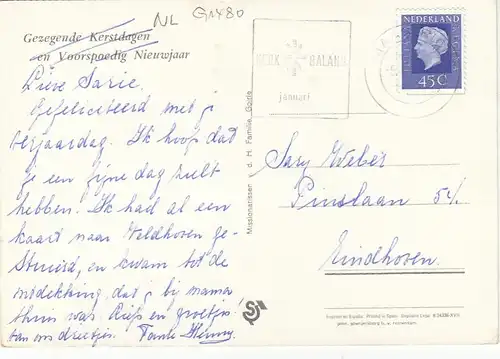 NL G1480
Gezegende Kerstdagen
en Voorspoedig Nieuwjaar
Lieve Sarie,
Gefeliciteerd met j
verjaardag. Ik hoop dat
je een fijne dag zult
hebben. Ik had al een
kaart naar Veldhoven ge-
stuurd, en kwam tot de
ontdekking, dat j bij mama
thuis was. Liefs en groetjes
van ons drietjes. Tante
januari
NEDERLAND
JULIANA REGINA
45C
Missionarissen v. d. H. Familie, Goirle
Sary Weber
Pinslaan 54.
Eindhoven.